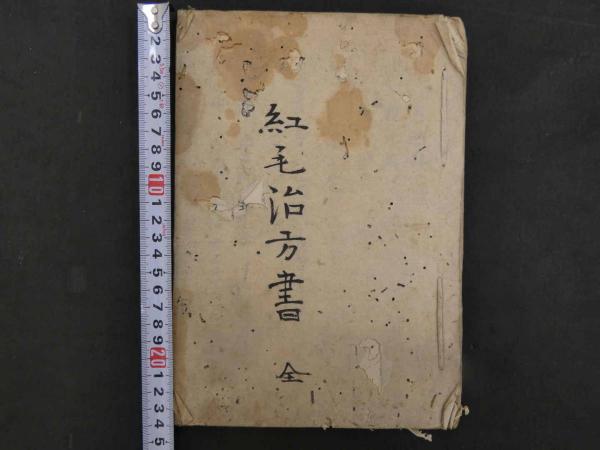 紅毛治方書 全
2 3 4 5 6 7 8 9 10 1 2 3 4 5 6 7 8 9 20 1 2 3 4 5